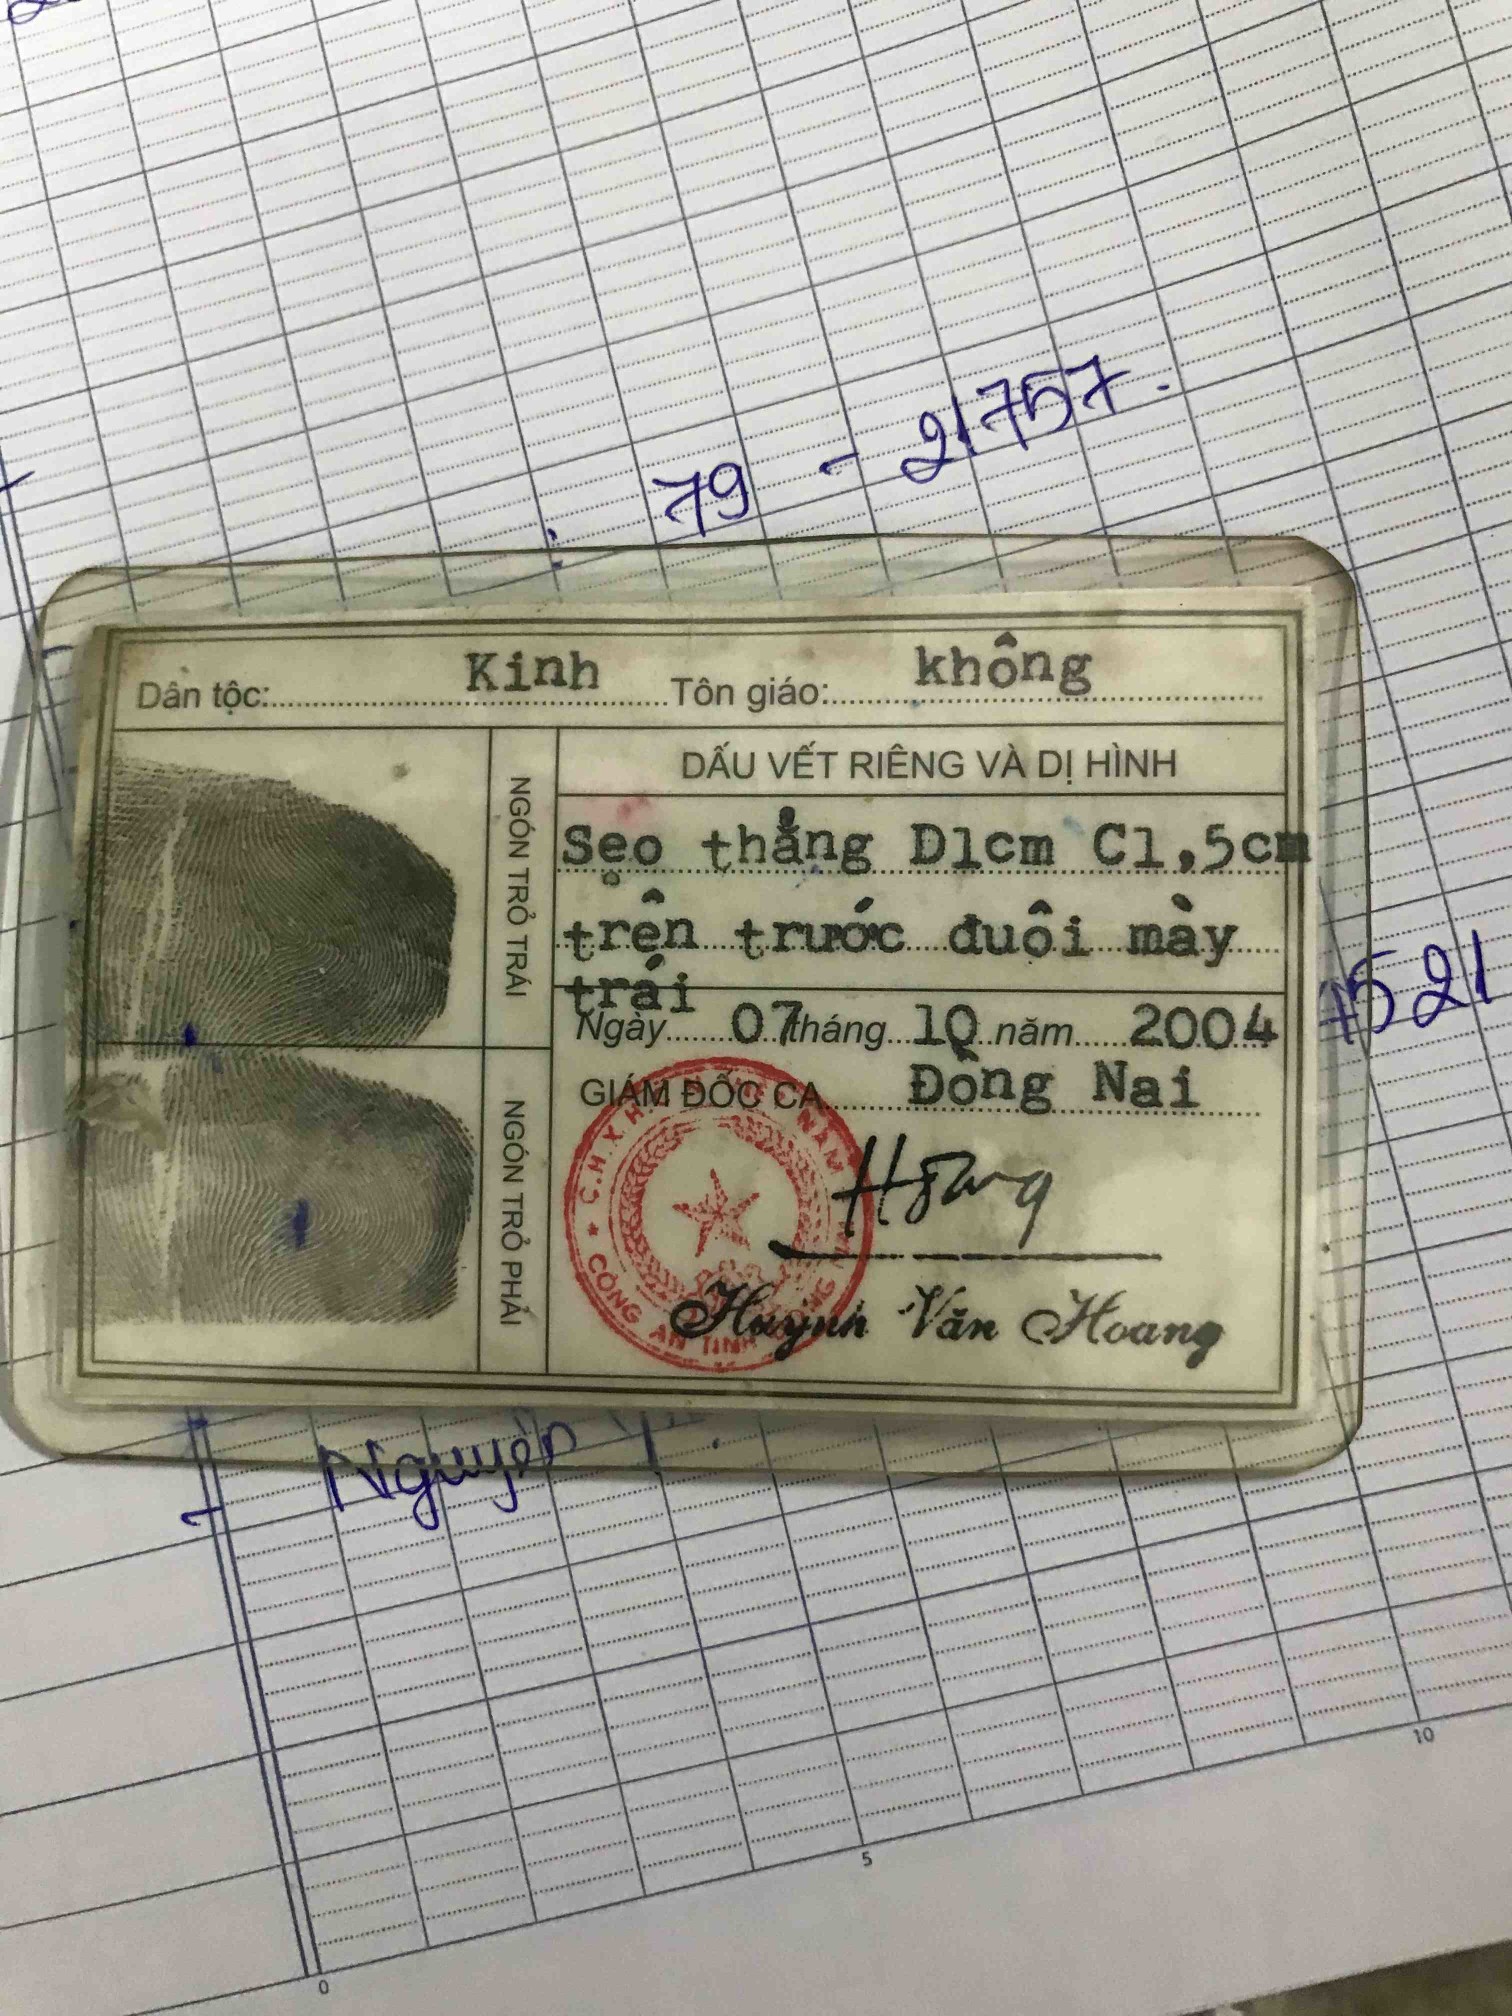 79 - 21757.
Dân tộc: Kinh Tôn giáo: không
NGÓN TRỎ TRÁI
DẤU VẾT RIÊNG VÀ DỊ HÌNH
Sẹo thẳng D1cm C1,5cm
trên trước đuôi mày
trái
Ngày 07 tháng 10 năm 2004
1521
GIÁM ĐỐC CA Đồng Nai
NGÓN TRỎ PHẢI
C.H.X.H. NAM
CÔNG AN TỈNH
Hoang
Huỳnh Văn Hoang
Nguyen
10
5
0